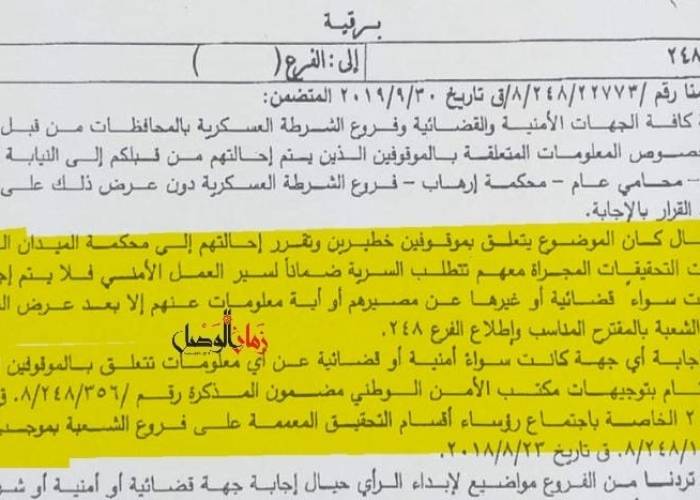 برقية
٢٤٨
إلى: الفرع( )
منا رقم /٨/٢٤٨/٢٢٧٧٣/ق تاريخ ٢٠١٩/٩/٣٠ المتضمن:
كافة الجهات الأمنية والقضائية وفروع الشرطة العسكرية بالمحافظات من قبل
خصوص المعلومات المتعلقة بالموقوفين الذين يتم إحالتهم من قبلكم إلى النيابة
– محامي عام – محكمة إرهاب – فروع الشرطة العسكرية دون عرض ذلك على
القرار بالإجابة.
ال كان الموضوع يتعلق بموقوفين خطيرين وتقرر إحالتهم إلى محكمة الميدان
ت التحقيقات المجراة معهم تتطلب السرية ضماناً لسير العمل الأمني فلا يتم
ت سواء قضائية أو غيرها عن مصيرهم أو أية معلومات عنهم إلا بعد عرض
الشعبة بالمقترح المناسب وإطلاع الفرع ٢٤٨.
زمان الوصل
جابة أي جهة كانت سواءً أمنية أو قضائية عن أي معلومات تتعلق بالموقوفين
ام بتوجيهات مكتب الأمن الوطني مضمون المذكرة رقم /٨/٢٤٨/٣٥٦. ق
٢ الخاصة باجتماع رؤساء أقسام التحقيق المعممة على فروع الشعبة بموجب
٨/٢٤٨/١. ق تاريخ ٢٠١٨/٨/٢٣.
ردنا من الفروع مواضيع لإبداء الرأي حيال إجابة جهة قضائية أو أمنية أو